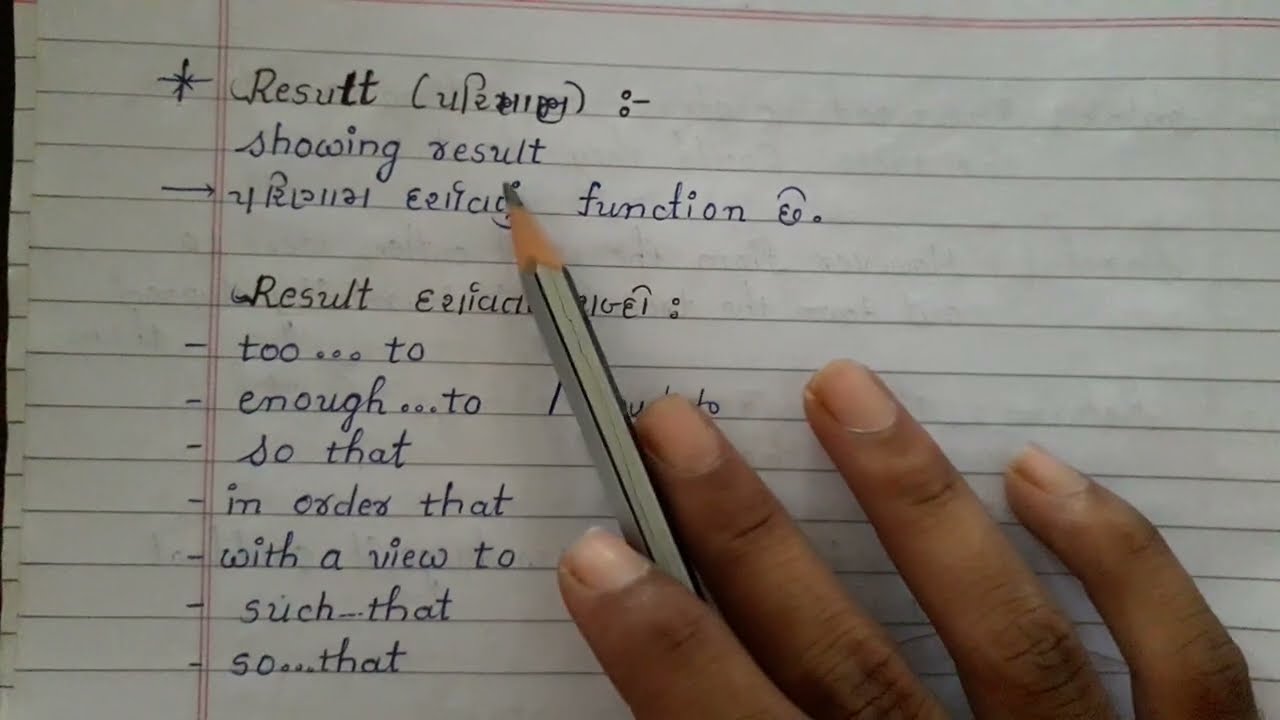 * Result (પરિણામ) :-
showing result
→ પરિણામ દર્શાવતું function છે.
Result દર્શાવતા :
- too... to
- enough...to / to
- so that
- in order that
- with a view to
- such...that
- so...that